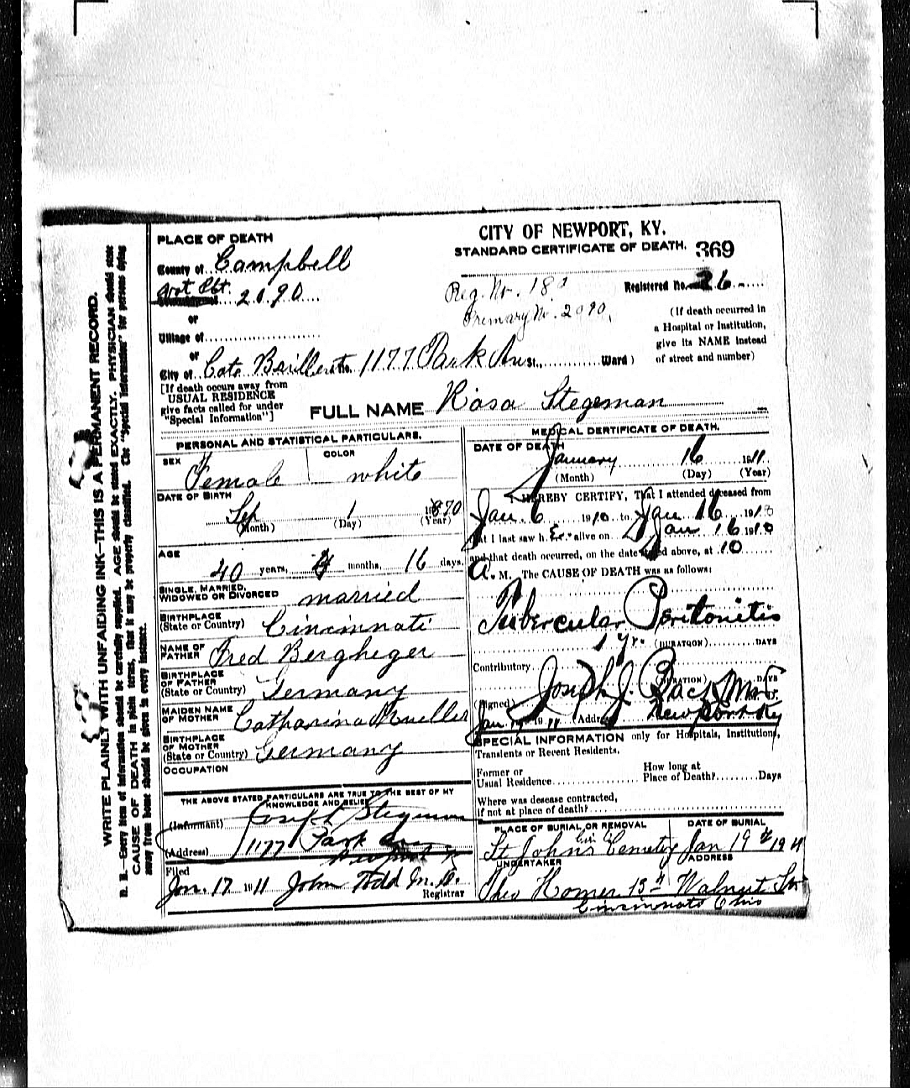 WRITE PLAINLY WITH UNFAIDING INK—THIS IS A PERMANENT RECORD.
N. B.—Every item of information should be carefully supplied. AGE should be stated EXACTLY. PHYSICIAN should state
CAUSE OF DEATH in plain terms, that it may be properly classified. The "Special Information" for persons dying
away from home should be given in every instance.
PLACE OF DEATH
County of Campbell
Vot Pct. 2090
or
Village of
or
City of No. 1177 Park Ave St., Ward )
[If death occurs away from
USUAL RESIDENCE
give facts called for under
"Special Information"]
CITY OF NEWPORT, KY.
STANDARD CERTIFICATE OF DEATH. 369
Reg. No. 18
Registered No. 26
Primary No. 2090.
(If death occurred in
a Hospital or Institution,
give its NAME instead
of street and number)
FULL NAME Rosa Stegeman
PERSONAL AND STATISTICAL PARTICULARS.
SEX Female
COLOR white
DATE OF BIRTH
Sep 1 1870
(Month) (Day) (Year)
AGE
40 years, 4 months, 16 days.
SINGLE, MARRIED,
WIDOWED OR DIVORCED married
BIRTHPLACE
(State or Country) Cincinnati
NAME OF
FATHER Fred Bergheger
BIRTHPLACE
OF FATHER
(State or Country) Germany
MAIDEN NAME
OF MOTHER Catharina Mueller
BIRTHPLACE
OF MOTHER
(State or Country) Germany
OCCUPATION
THE ABOVE STATED PARTICULARS ARE TRUE TO THE BEST OF MY
KNOWLEDGE AND BELIEF
(Informant) Joseph Stegeman
(Address) 1177 Park Ave
Newport K
Filed
Jan. 17 1911 John Todd M.D.
Registrar
MEDICAL CERTIFICATE OF DEATH.
DATE OF DEATH
January 16 1911
(Month) (Day) (Year)
I HEREBY CERTIFY, That I attended deceased from
Jan 6 1910 to Jan 16 1910
that I last saw h er alive on Jan 16 1910
and that death occurred, on the date stated above, at 10
A. M. The CAUSE OF DEATH was as follows:
Tubercular Peritonitis
1 yr. (DURATION) DAYS
Contributory
(DURATION) DAYS
(Signed) Joseph J. M.D.
Jan 1911 (Address) Newport Ky
SPECIAL INFORMATION only for Hospitals, Institutions,
Transients or Recent Residents.
Former or
Usual Residence
How long at
Place of Death? Days
Where was desease contracted,
if not at place of death?
PLACE OF BURIAL OR REMOVAL
St Johns Cemetery
DATE OF BURIAL
Jan 19th 1911
UNDERTAKER
ADDRESS
Theo Homer 13th Walnut Sts
Cincinnati Ohio